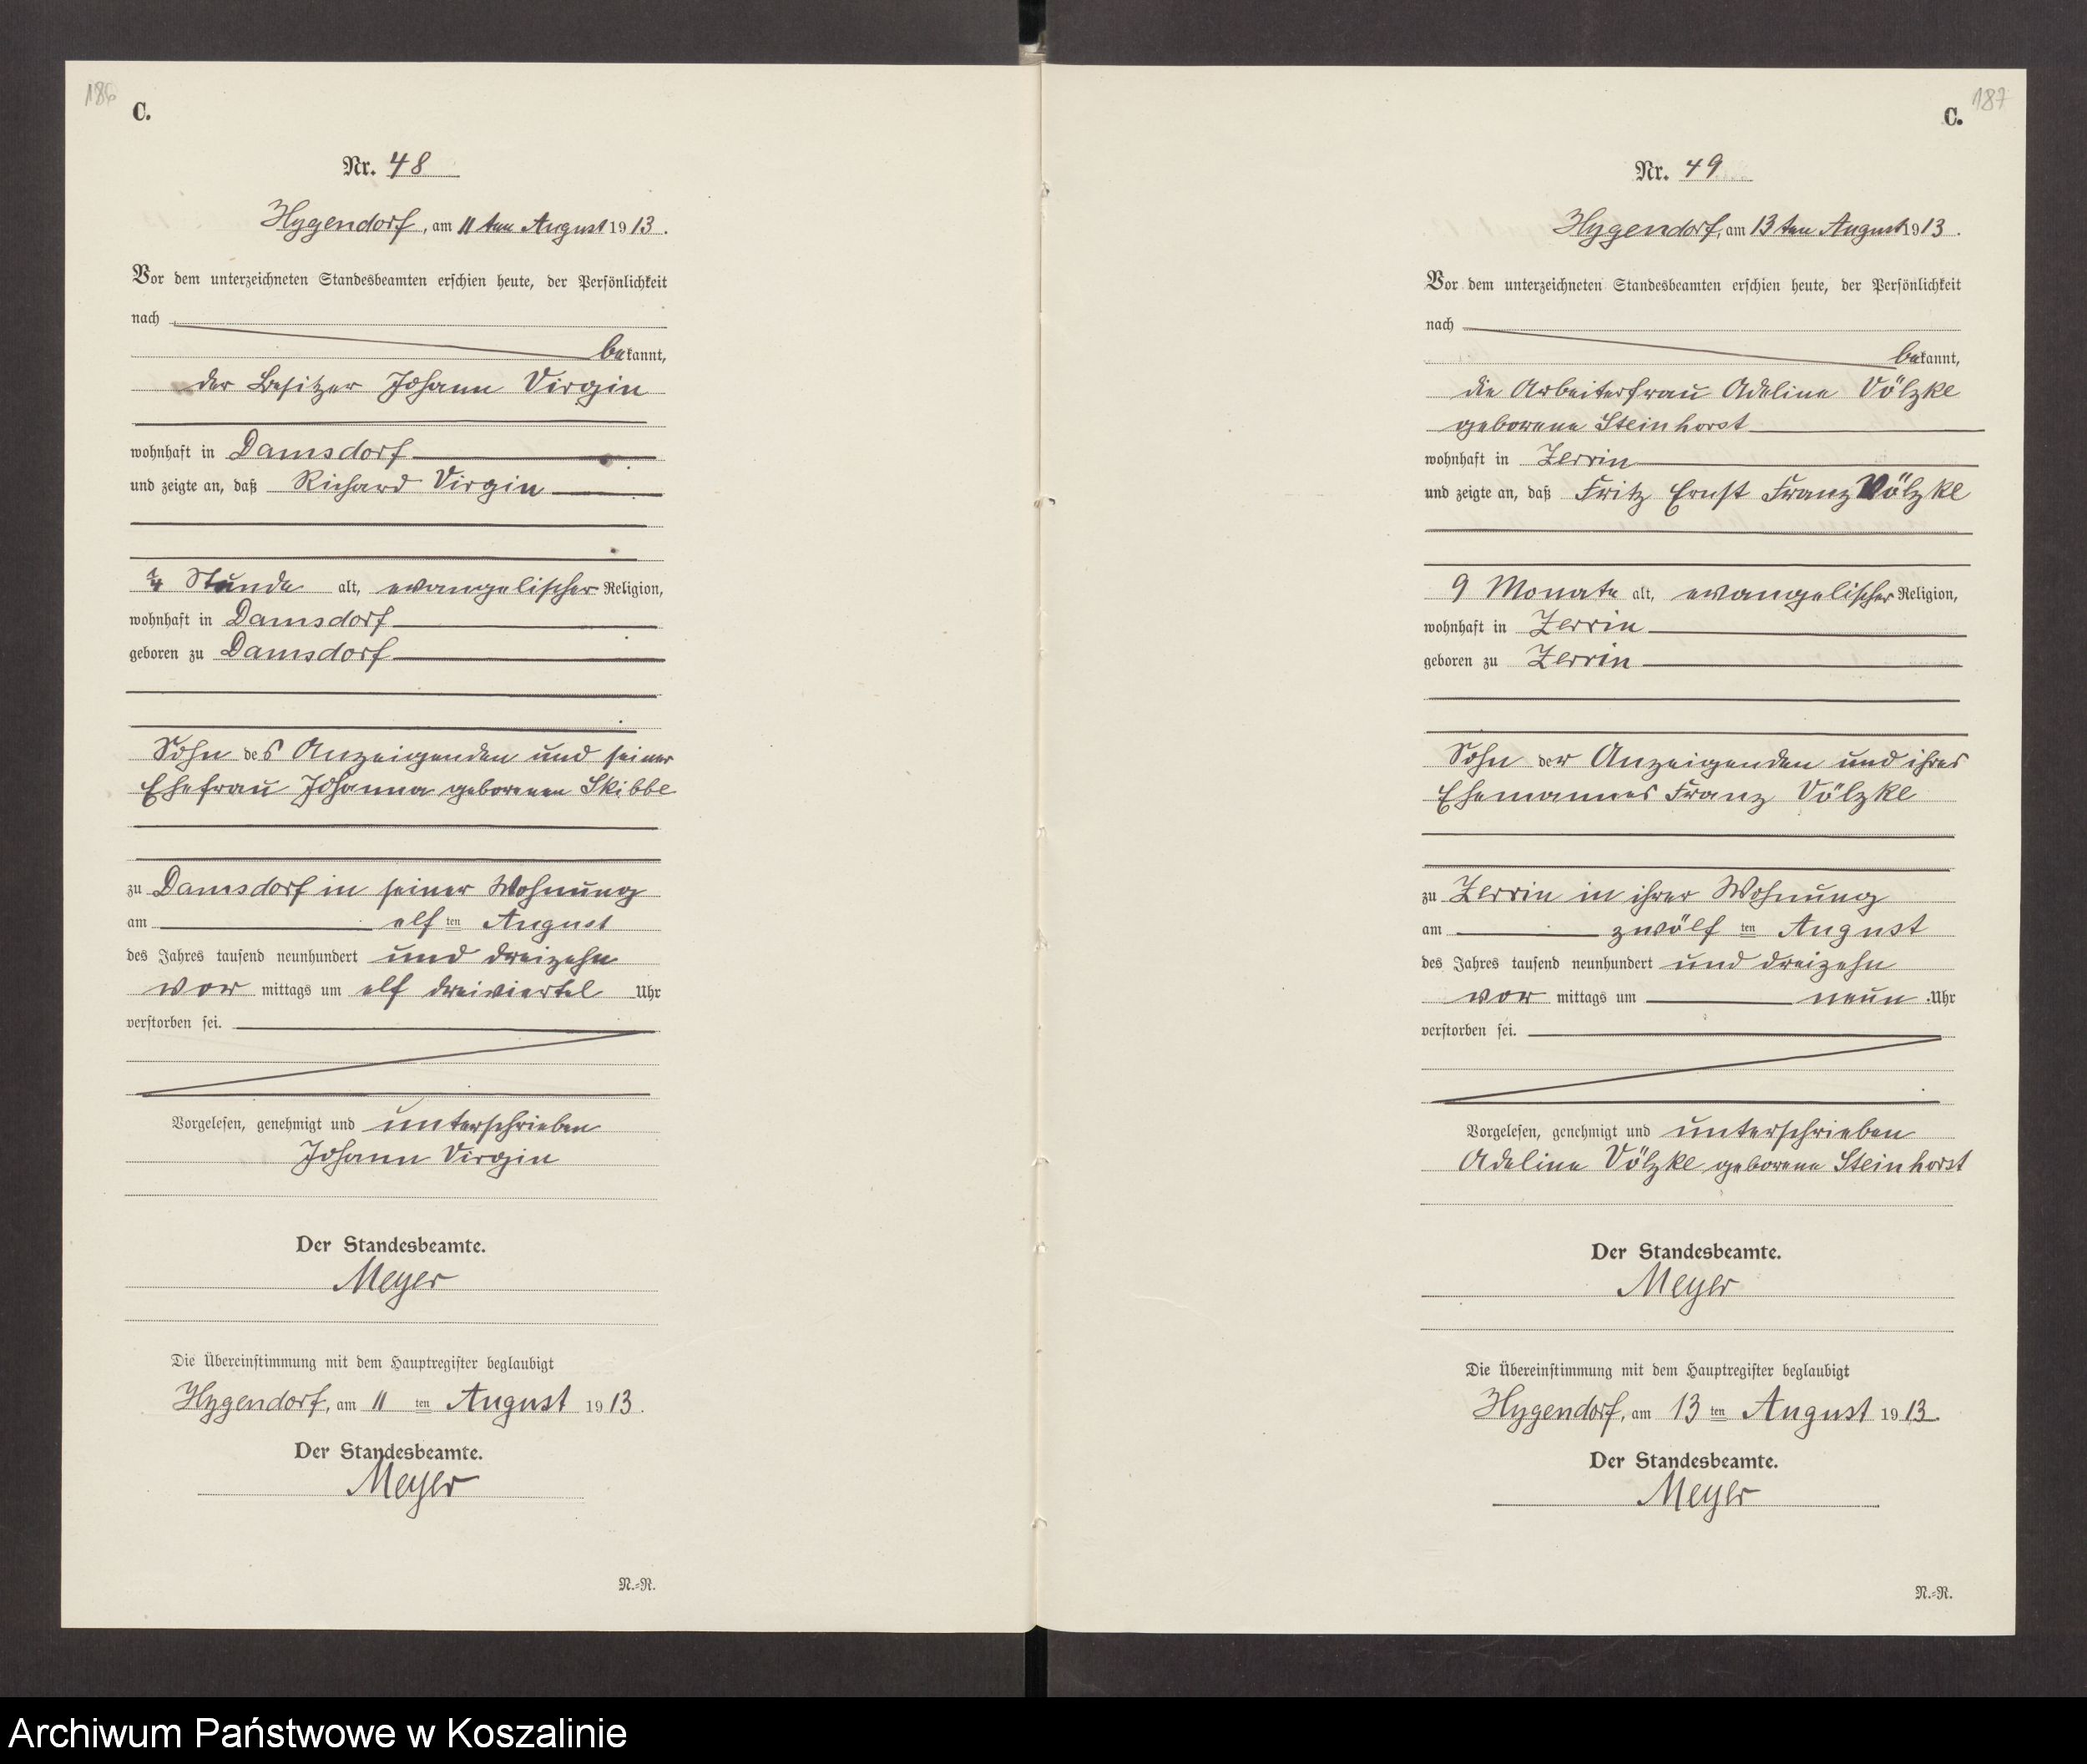 186
C.
Nr. 48
Hygendorf, am 11ten August 1913.
Vor dem unterzeichneten Standesbeamten erschien heute, der Persönlichkeit
nach
bekannt,
der Besitzer Johann Virgin
wohnhaft in Damsdorf
und zeigte an, daß Richard Virgin
1/4 Stunde alt, evangelischer Religion,
wohnhaft in Damsdorf
geboren zu Damsdorf
Sohn des Anzeigenden und seiner
Ehefrau Johanna geborenen Skibbe
zu Damsdorf in seiner Wohnung
am elften August
des Jahres tausend neunhundert und dreizehn
vormittags um elf dreiviertel Uhr
verstorben sei.
Vorgelesen, genehmigt und unterschrieben
Johann Virgin
Der Standesbeamte.
Meyer
Die Übereinstimmung mit dem Hauptregister beglaubigt
Hygendorf, am 11ten August 1913.
Der Standesbeamte.
Meyer
N.=R.
187
C.
Nr. 49
Hygendorf, am 13ten August 1913.
Vor dem unterzeichneten Standesbeamten erschien heute, der Persönlichkeit
nach
bekannt,
die Arbeiterfrau Adeline Völzke
geborene Steinhorst
wohnhaft in Zerrin
und zeigte an, daß Fritz Ernst Franz Völzke
9 Monate alt, evangelischer Religion,
wohnhaft in Zerrin
geboren zu Zerrin
Sohn der Anzeigenden und ihres
Ehemannes Franz Völzke
zu Zerrin in ihrer Wohnung
am zwölften August
des Jahres tausend neunhundert und dreizehn
vormittags um neun Uhr
verstorben sei.
Vorgelesen, genehmigt und unterschrieben
Adeline Völzke geborene Steinhorst
Der Standesbeamte.
Meyer
Die Übereinstimmung mit dem Hauptregister beglaubigt
Hygendorf, am 13ten August 1913.
Der Standesbeamte.
Meyer
N.=R.
Archiwum Państwowe w Koszalinie